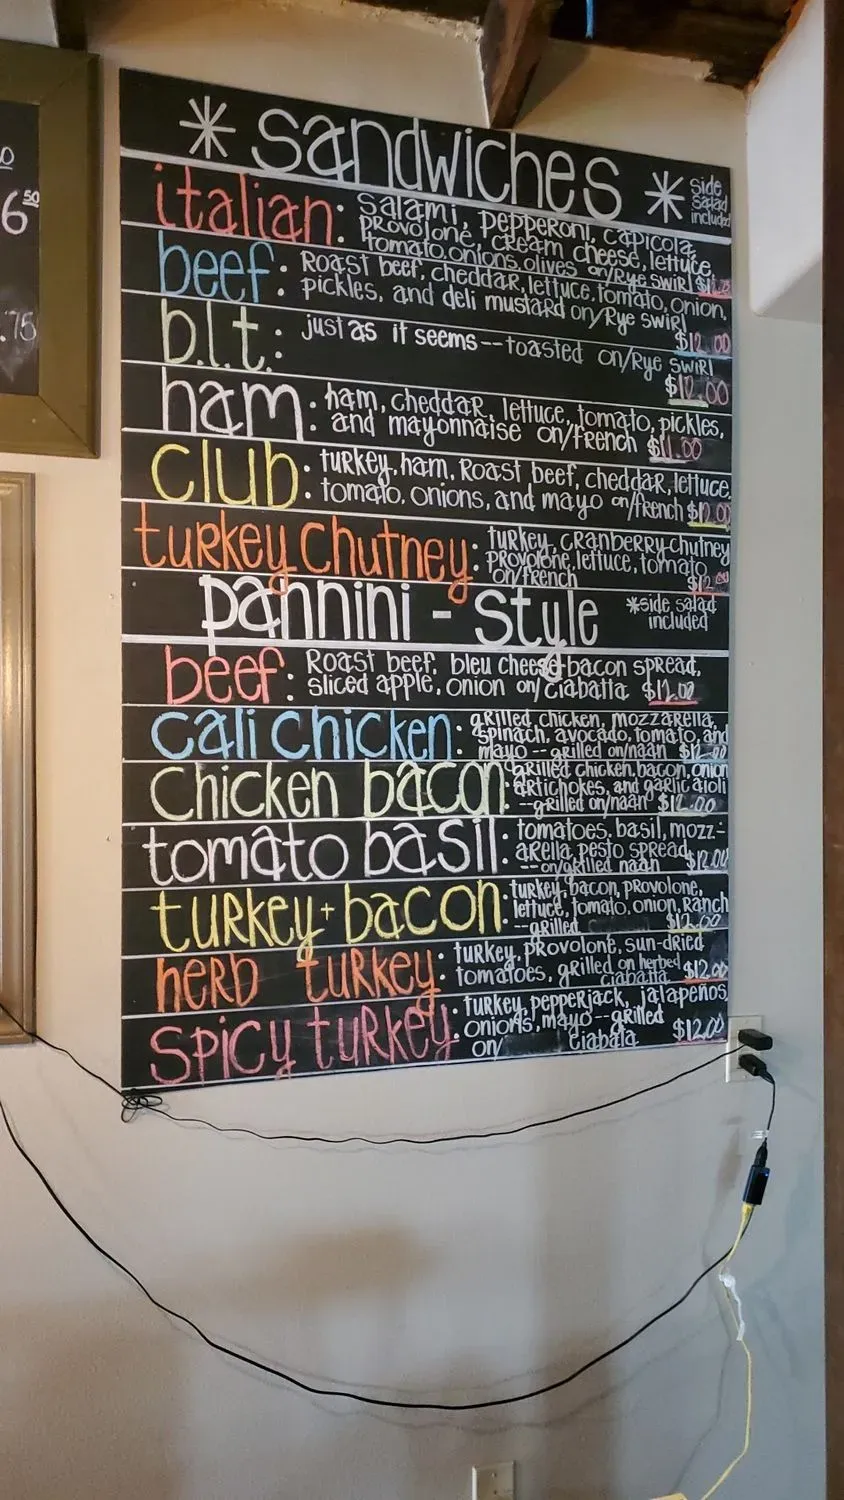 0
6 50
.75
* sandwiches *
side
salad
included
italian: salami, pepperoni, capicola,
provolone, cream cheese, lettuce,
tomato, onions, olives on/Rye swirl
beef: Roast beef, cheddar, lettuce, tomato, onion,
pickles, and deli mustard on/Rye swirl
$12.00
b.l.t.: just as it seems -- toasted on/Rye swirl
$12.00
ham: ham, cheddar, lettuce, tomato, pickles,
and mayonnaise on/french $11.00
club: turkey, ham, Roast beef, cheddar, lettuce,
tomato, onions, and mayo on/french $12.00
turkey chutney: turkey, cranberry chutney
provolone, lettuce, tomato
on/french $12.00
pannini - style *side salad
included
beef: Roast beef, bleu cheese-bacon spread,
sliced apple, onion on/ciabatta $12.00
cali chicken: grilled chicken, mozzarella,
spinach, avocado, tomato, and
mayo -- grilled on/naan $12.00
chicken bacon: grilled chicken, bacon, onion
artichokes, and garlic aioli
-- grilled on/naan $12.00
tomato basil: tomatoes, basil, mozz-
arella, pesto spread
-- on/grilled naan $12.00
turkey + bacon: turkey, bacon, provolone,
lettuce, tomato, onion, Ranch
-- grilled $12.00
herb turkey: turkey, provolone, sun-dried
tomatoes, grilled on herbed
ciabatta $12.00
spicy turkey: turkey, pepperjack, jalapeños,
onions, mayo -- grilled
on/ ciabata $12.00